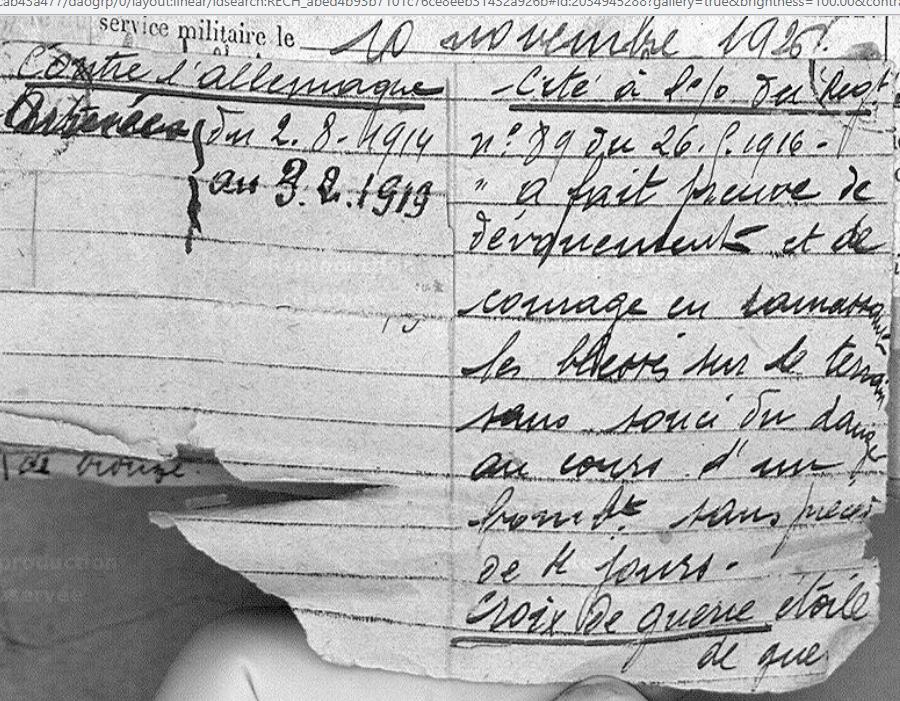 cab43a477/daogrp/0/layout:linear/idsearch:RECH_abed4b95b7101c76ce8eeb31432a926b#id:2054945288?gallery=true&brightness=100.00&contra
service militaire le 10 novembre 192
Contre l'allemagne
du 2.8.1914
au 3.2.1919
- Cité à l'o/o du Regt
n° 89 du 26. .1916 -
" a fait preuve de
dévouement et de
courage en ramassant
les blessés sur le terrain
sans souci du danger
au cours d'un
bombt sans précé
de 4 jours -
Croix de guerre étoile
de bronze
de gue
production
servée